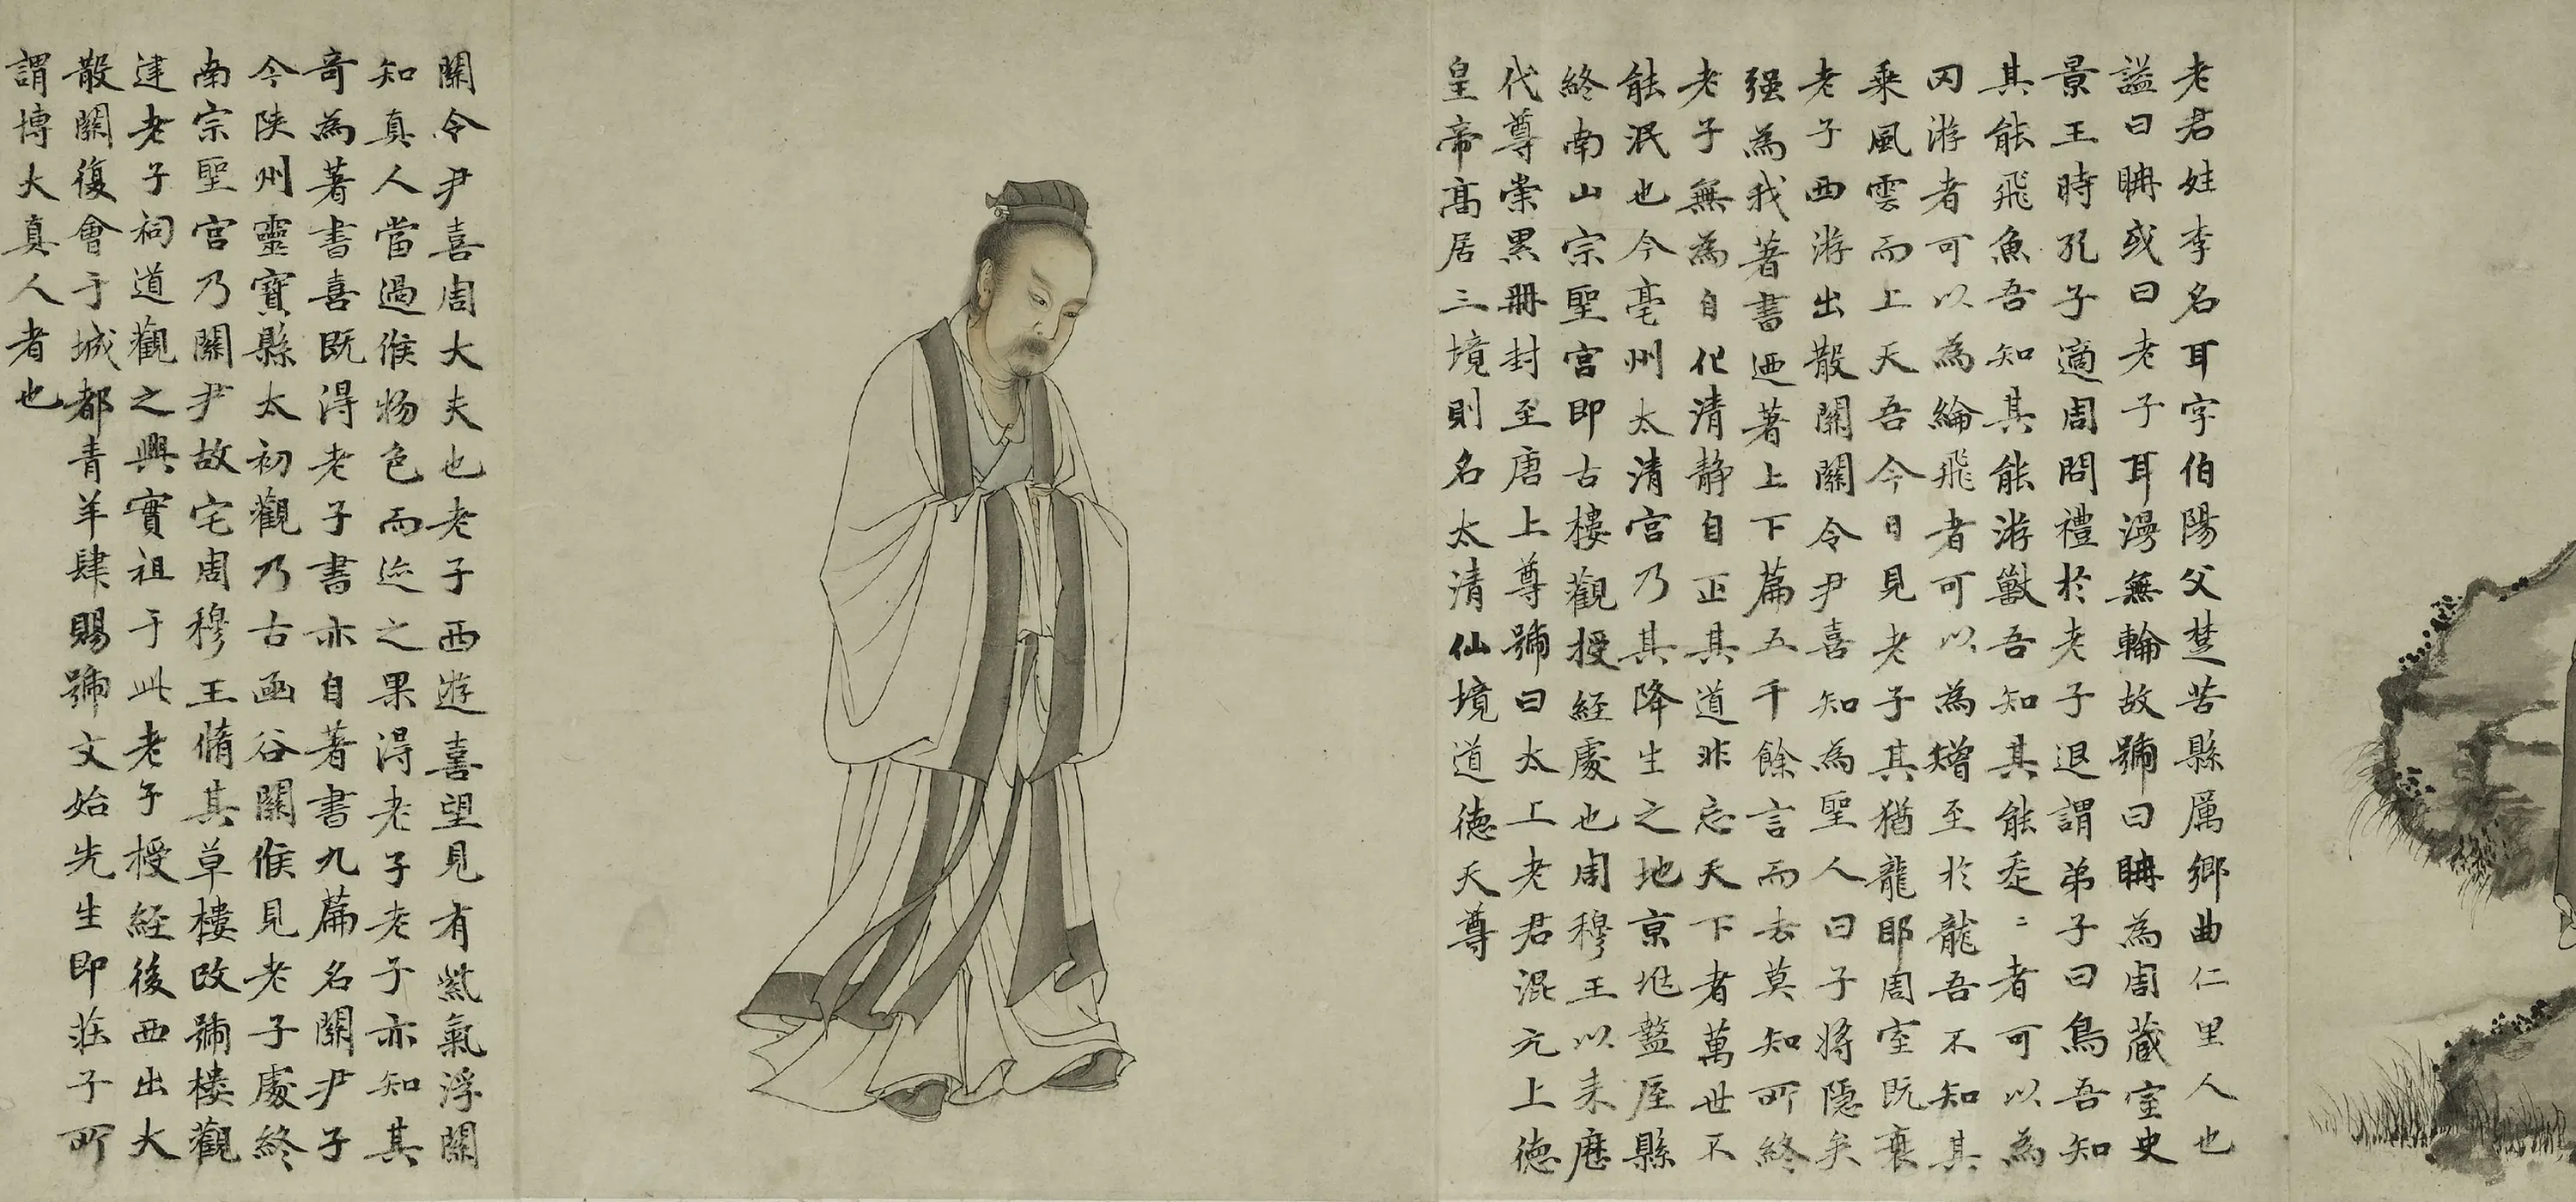 老君姓李名耳字伯陽父楚苦縣厲鄉曲仁里人也
謚曰聃或曰老子耳漫無輪故號曰聃為周藏室史
景王時孔子適周問禮於老子退謂弟子曰鳥吾知
其能飛魚吾知其能游獸吾知其能走二者可以為
罔游者可以為綸飛者可以為矰至於龍吾不知其
乘風雲而上天吾今日見老子其猶龍耶周室既衰
老子西游出散關關令尹喜知為聖人曰子將隱矣
强為我著書迺著上下篇五千餘言而去莫知所終
老子無為自化清静自正其道非忘天下者萬世不
能泯也今亳州太清宮乃其降生之地京兆盩厔縣
終南山宗聖宮即古樓觀授經處也周穆王以来歷
代尊崇累冊封至唐上尊號曰太上老君混元上德
皇帝高居三境則名太清仙境道德天尊
關令尹喜周大夫也老子西遊喜望見有紫氣浮關
知真人當過候物色而迹之果得老子老子亦知其
奇為著書喜既得老子書亦自著書九篇名關尹子
今陝州靈寶縣太初觀乃古函谷關候見老子處終
南宗聖宮乃關尹故宅周穆王脩其草樓改號樓觀
建老子祠道觀之興實祖于此老子授經後西出大
散關復會于成都青羊肆賜號文始先生即莊子所
謂博大真人者也